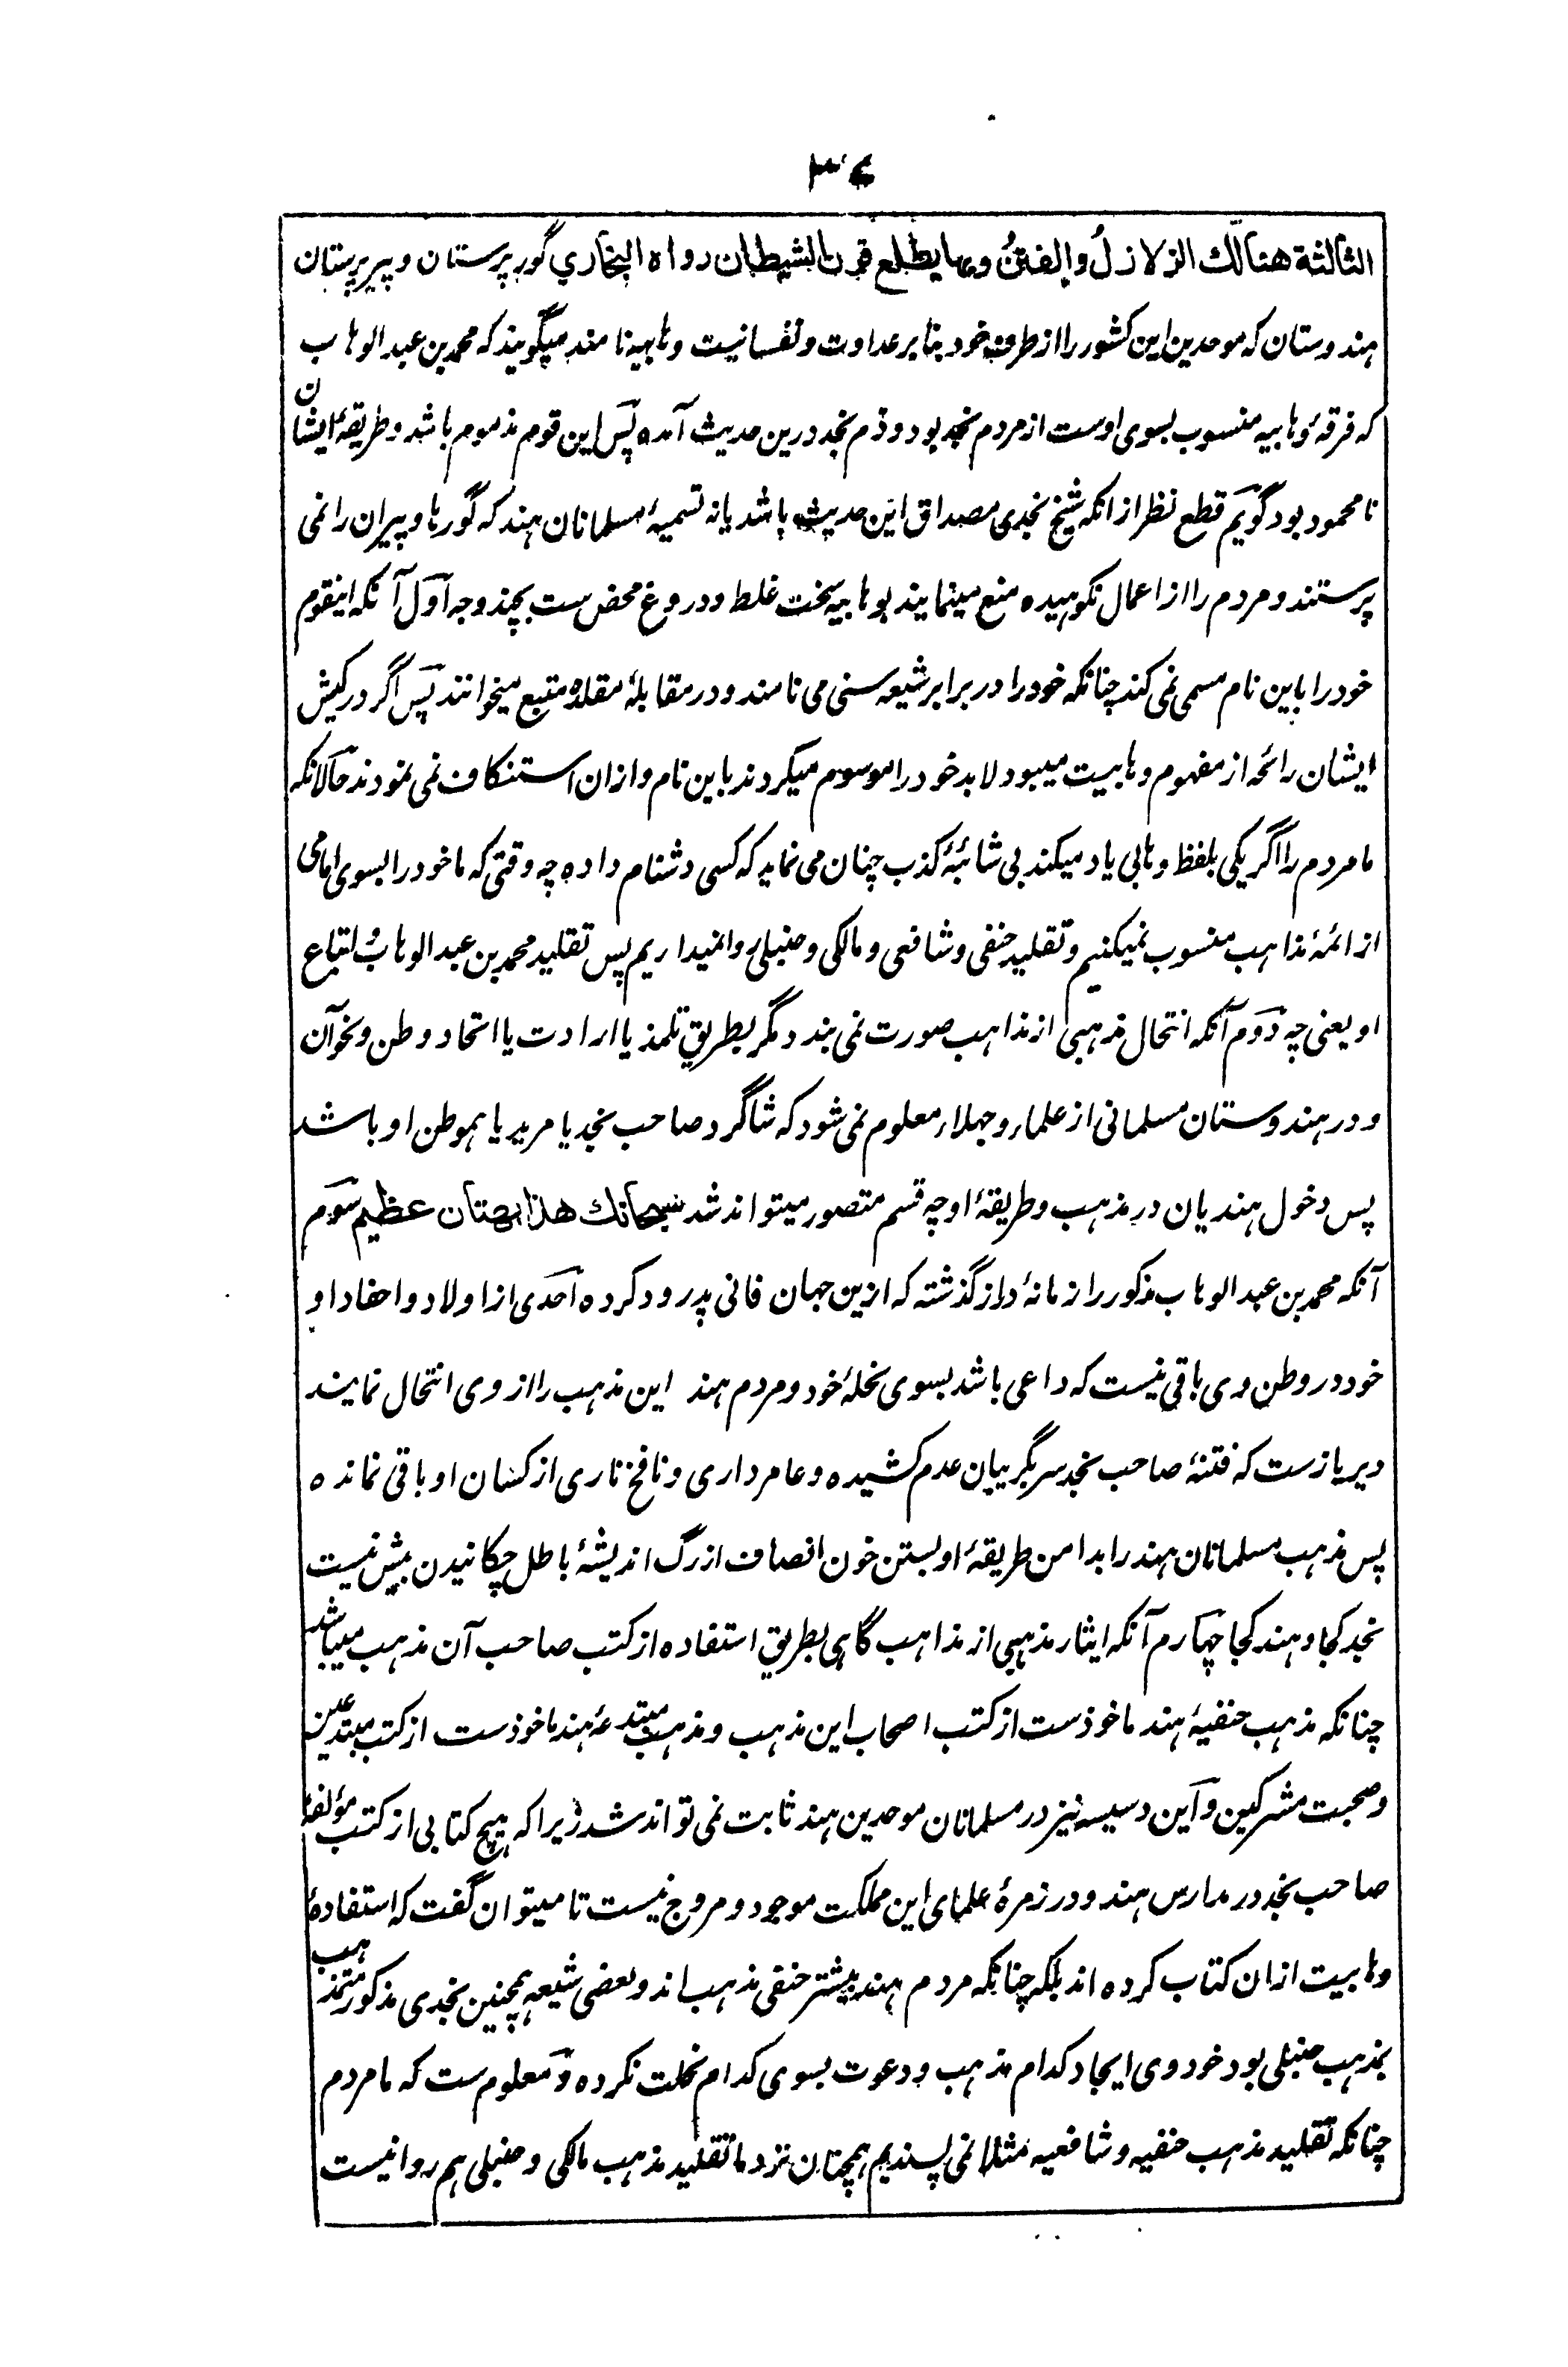 ۳۷
الثالثة هنالك الزلازلُ والفتنُ وبها يطلع قرن الشيطان رواه البخاري گورپرستان و پیرپرستان
ہندوستان کہ موحدین این کشور را از طرف خود بنا بر عداوت و نفسانیت وہابیہ نامند میگویند کہ محمد بن عبد الوہاب
کہ فرقۂ وہابیہ منسوب بسوی اوست از مردم نجد بود و ذم نجد درین حدیث آمدہ پس این قوم مذموم باشد و طریقۂ ایشان
نامحمود بود گویم قطع نظر از انکہ شیخ نجدی مصداق این حدیث باشد یا نہ تسمیۂ مسلمانان ہند کہ گورہا و پیران را نمی
پرستند و مردم را از اعمال نکوہیدہ منع مینمایند بوہابیہ سخت غلط و دروغ محض ست بچند وجہ اول آنکہ اینقوم
خود را باین نام مسمی نمی کند چنانکہ خود را در برابر شیعہ سنی می نامند و در مقابلۂ مقلدہ متبع میخوانند پس اگر در کیش
ایشان رائحہ از مفہوم وہابیت میبود لابد خود را موسوم میکردند باین نام و ازان استنکاف نمی نمودند حالانکہ
ما مردم را اگر یکی بلفظ وہابی یاد میکند بی شائبۂ کذب چنان می نماید کہ کسی دشنام دادہ چہ وقتی کہ ما خود را بسوی امامی
از ائمۂ مذاہب منسوب نمیکنیم و تقلید حنفی و شافعی و مالکی و حنبلی روا نمیداریم پس تقلید محمد بن عبد الوہاب و اتباع
او یعنی چہ دوم آنکہ انتحال مذہبی از مذاہب صورت نمی بندد مگر بطریق تلمذ یا ارادت یا اتحاد وطن و نحو آن
و در ہندوستان مسلمانی از علماء و جہلاء معلوم نمی شود کہ شاگرد صاحب نجد یا مرید یا ہموطن او باشد
پس دخول ہندیان در مذہب و طریقۂ او چہ قسم متصور میتواند شد سبحانك هذا بهتان عظیم سوم
آنکہ محمد بن عبد الوہاب مذکور را زمانۂ دراز گذشتہ کہ ازین جہان فانی پدرود کردہ احدی از اولاد و احفاد او
خود در وطن وی باقی نیست کہ داعی باشد بسوی نحلۂ خود و مردم ہند این مذہب را از وی انتحال نمایند
دیر باز ست کہ فتنۂ صاحب نجد سر بگریبان عدم کشیدہ و عامر داری و نافخ ناری از کسان او باقی نماندہ
پس مذہب مسلمانان ہند را بدامن طریقۂ او بستن خون انصاف از رگ اندیشۂ باطل چکانیدن بیش نیست
نجد کجا و ہند کجا چہارم آنکہ ایثار مذہبی از مذاہب گاہی بطریق استفادہ از کتب صاحب آن مذہب میباشد
چنانکہ مذہب حنفیۂ ہند ماخوذ ست از کتب اصحاب این مذہب و مذہب مبتدعۂ ہند ماخوذ ست از کتب مبتدعین
و صحبت مشرکین و این دسیسہ نیز در مسلمانان موحدین ہند ثابت نمی تواند شد زیرا کہ ہیچ کتابی از کتب مؤلفۂ
صاحب نجد در مدارس ہند و در زمرۂ علمای این مملکت موجود و مروج نیست تا میتوان گفت کہ استفادۂ
وہابیت ازان کتاب کردہ اند بلکہ چنانکہ مردم ہند بیشتر حنفی مذہب اند و بعضی شیعہ ہمچنین نجدی مذکور متمذہب
بمذہب حنبلی بود خود وی ایجاد کدام مذہب و دعوت بسوی کدام نحلت نکردہ و معلوم ست کہ ما مردم
چنانکہ تقلید مذہب حنفیہ و شافعیہ مثلا نمی پسندیم ہمچنان نزد ما تقلید مذہب مالکی و حنبلی ہم روا نیست